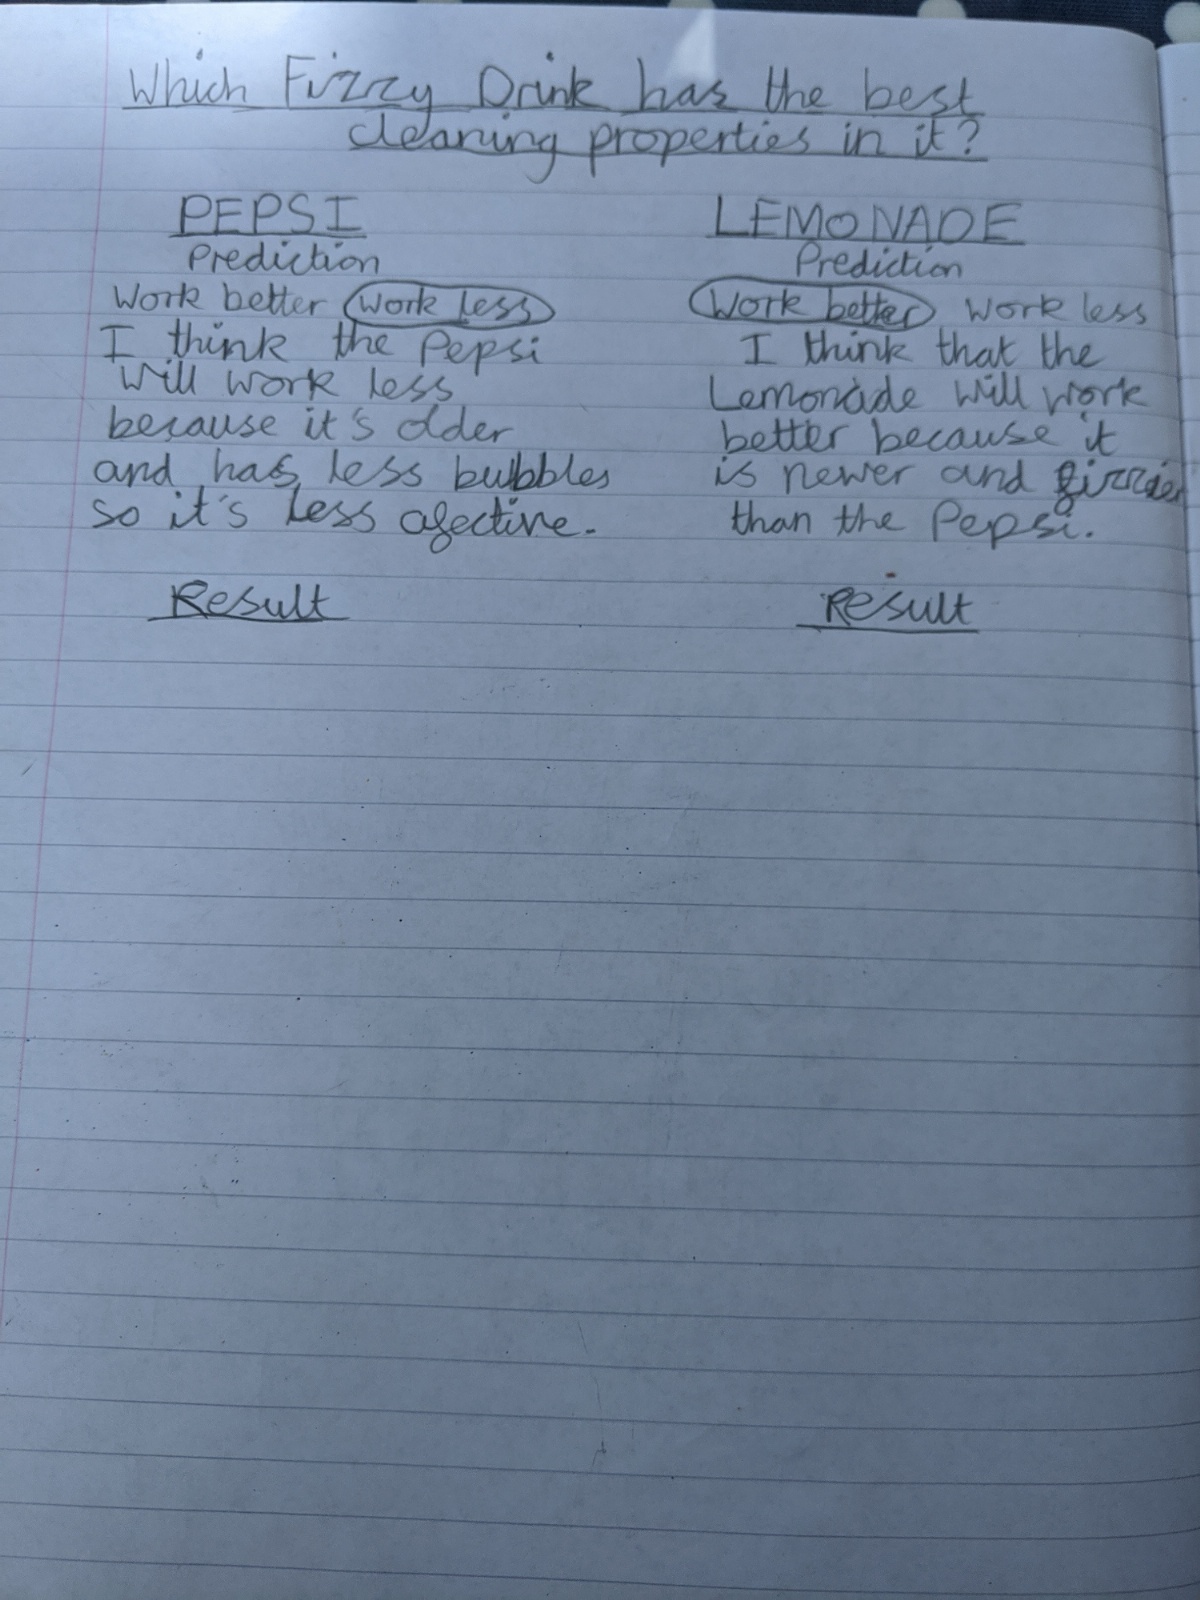 Which Fizzy Drink has the best
cleaning properties in it?
PEPSI
Prediction
Work better work less
I think the Pepsi
will work less
because it's older
and has less bubbles
so it's less afective.
Result
LEMONADE
Prediction
Work better work less
I think that the
Lemonade will work
better because it
is newer and fizzier
than the Pepsi.
Result